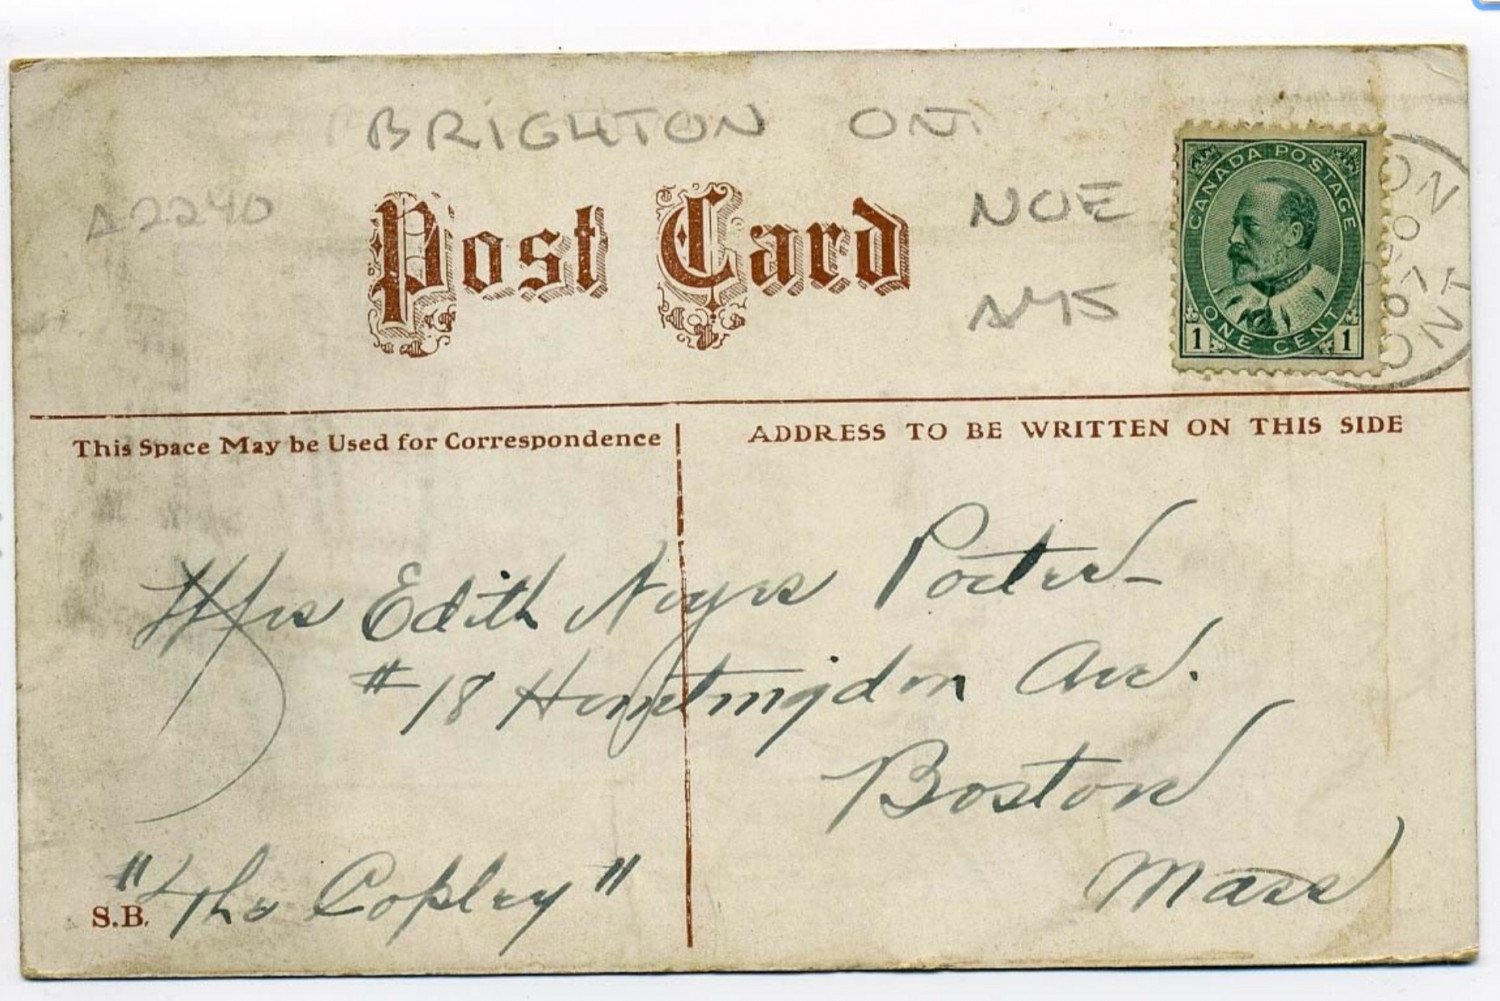 BRIGHTON ON
A2240
Post Card
NOE
A45
CANADA POSTAGE
ONE CENT
1 1
ON
07
ONT
This Space May be Used for Correspondence
ADDRESS TO BE WRITTEN ON THIS SIDE
Mrs Edith Noyes Porter
#18 Huntingdon Ave.
Boston
Mass
"The Copley"
S.B.